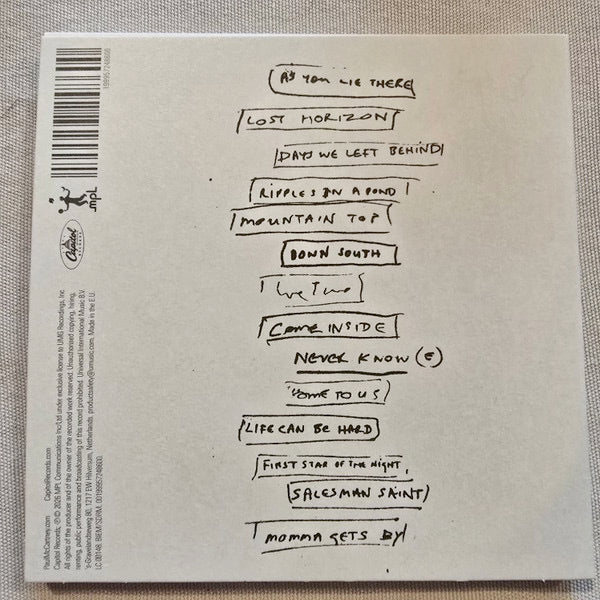 AS YOU LIE THERE
LOST HORIZON
DAYS WE LEFT BEHIND
RIPPLES IN A POND
MOUNTAIN TOP
DOWN SOUTH
We Two
COME INSIDE
NEVER KNOW (E)
HOME TO US
LIFE CAN BE HARD
FIRST STAR OF THE NIGHT
SALESMAN SAINT
MOMMA GETS BY
mpl
Capitol
PaulMcCartney.com CapitolRecords.com
Capitol Records; ℗ © 2026 MPL Communications Inc/Ltd under exclusive license to UMG Recordings, Inc.
All rights of the producer and of the owner of the recorded work reserved. Unauthorised copying, hiring,
renting, public performance and broadcasting of this record prohibited. Universal International Music B.V.
's-Gravelandseweg 80, 1217 EW Hilversum, Netherlands. productsafety@umusic.com. Made in the E.U.